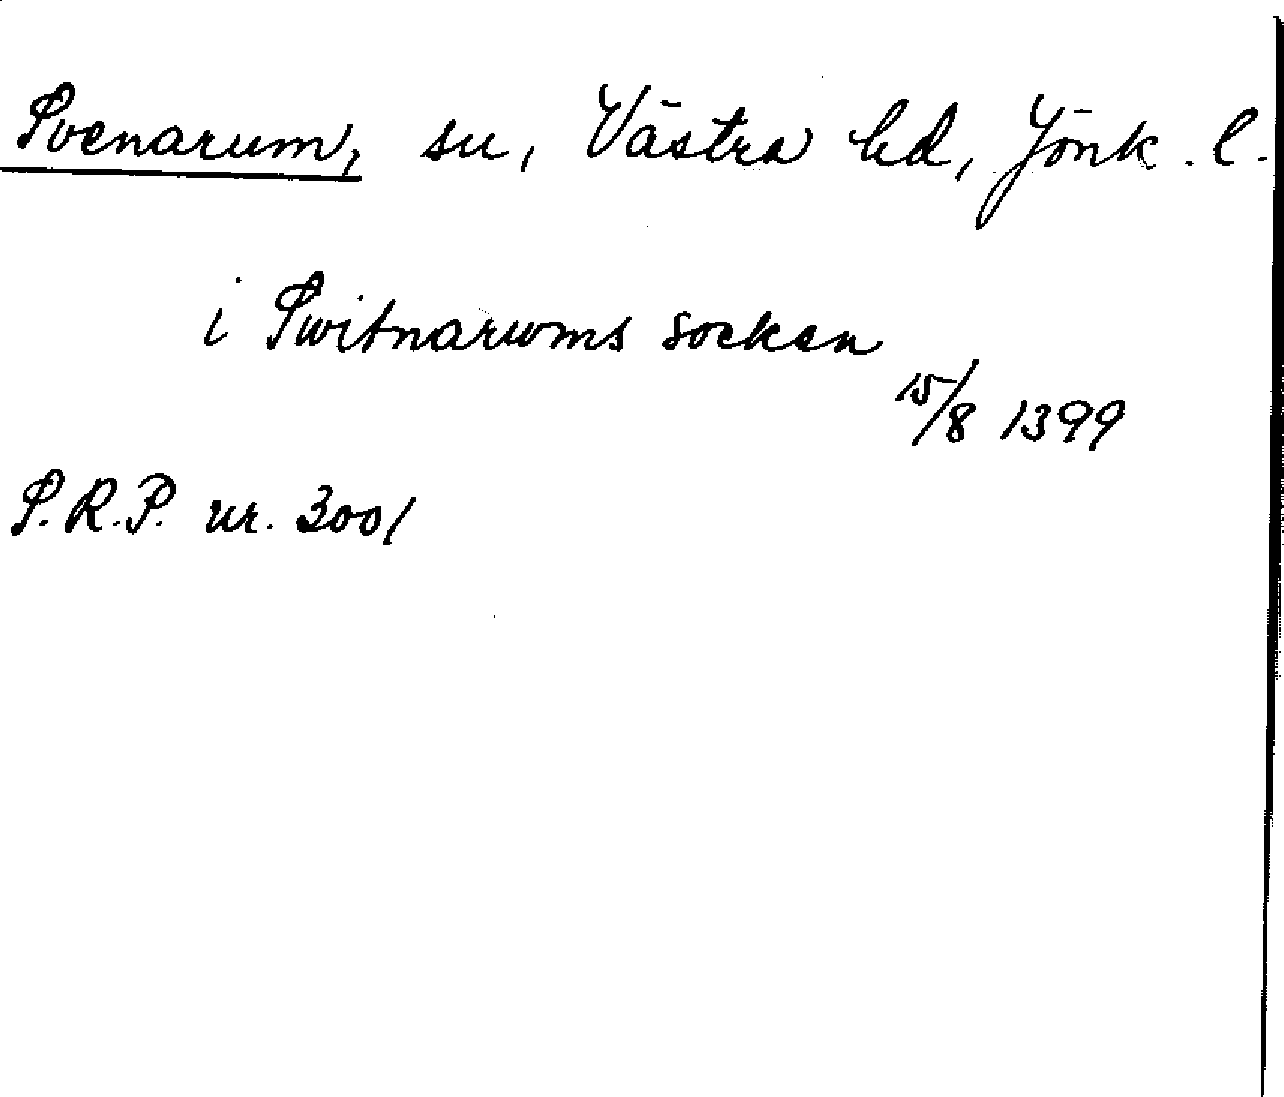 Svenarum, sn, Västra hd, Jönk. l.
i Switnarwms sockan
15/8 1399
S.R.P. nr. 3001